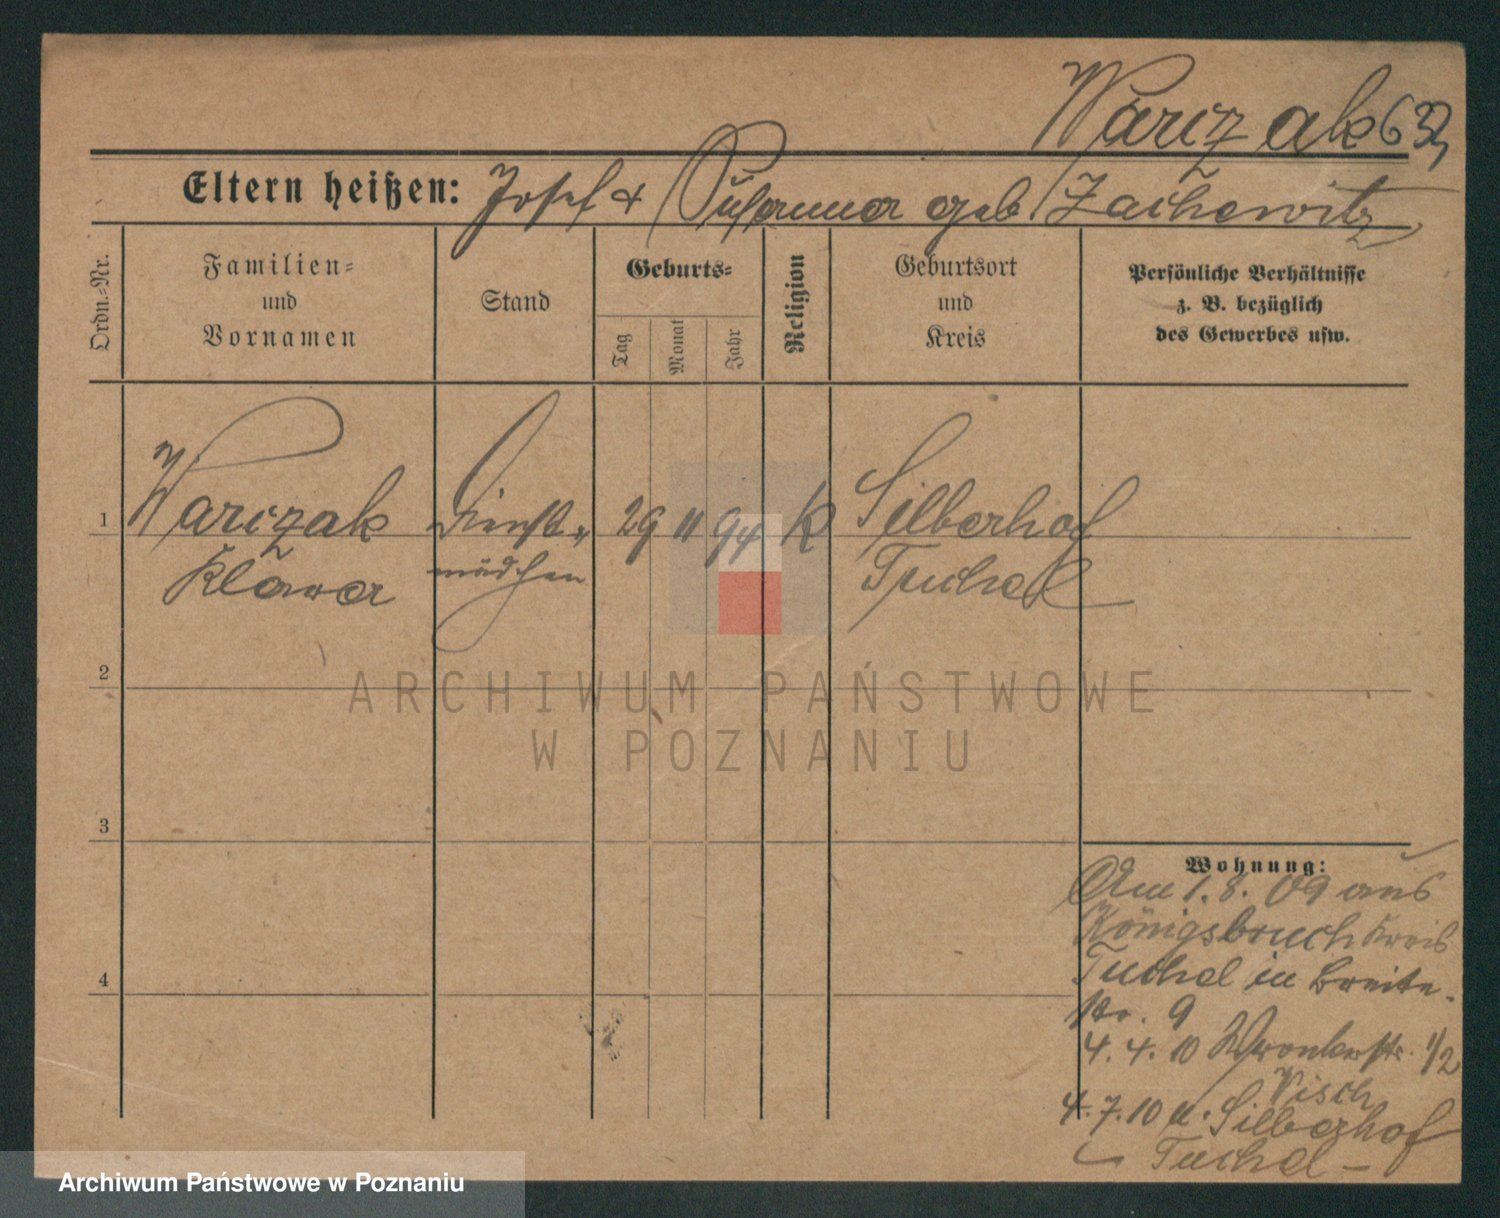 Warczak 632
Eltern heißen: Josef & Susanna geb Zachewitz
Ordn.-Nr.
Familien-
und
Vornamen
Stand
Geburts-
Tag
Monat
Jahr
Religion
Geburtsort
und
Kreis
Persönliche Verhältnisse
z. B. bezüglich
des Gewerbes usw.
1
Warczak Dienst- 29 11 94 K Silberhof
Klara mädchen Tuchel
2
ARCHIWUM PAŃSTWOWE
W POZNANIU
3
Wohnung:
Am 1. 8. 09 aus
Königsbruch Kreis
Tuchel in Breite-
str. 9
4
4. 4. 10 Wronkerstr. 1/2
4. 7. 10 n. Silberhof
Tuchel
Archiwum Państwowe w Poznaniu